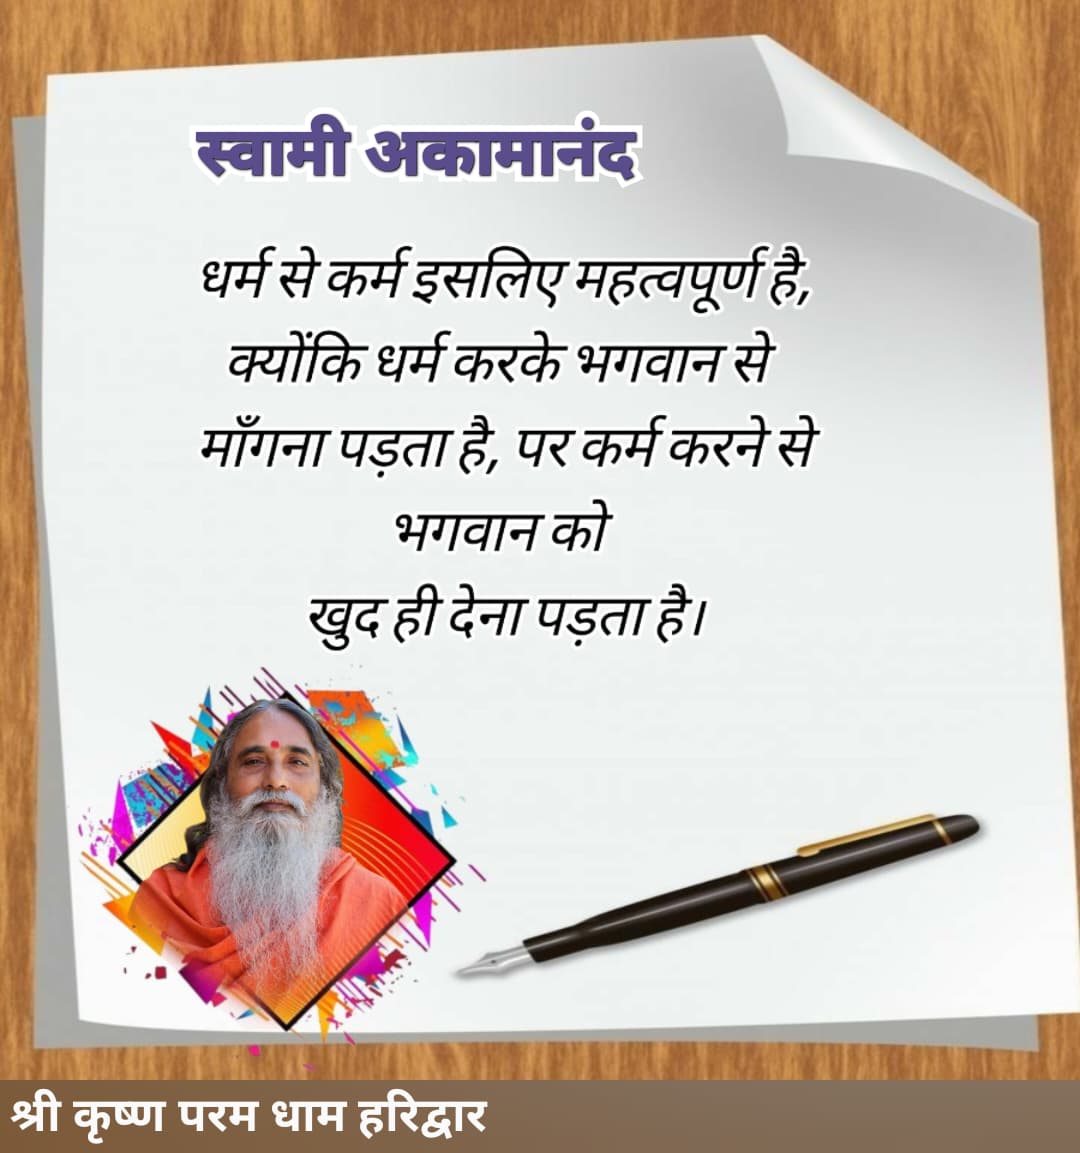 स्वामी अकामानंद
धर्म से कर्म इसलिए महत्वपूर्ण है,
क्योंकि धर्म करके भगवान से
माँगना पड़ता है, पर कर्म करने से
भगवान को
खुद ही देना पड़ता है।
श्री कृष्ण परम धाम हरिद्वार